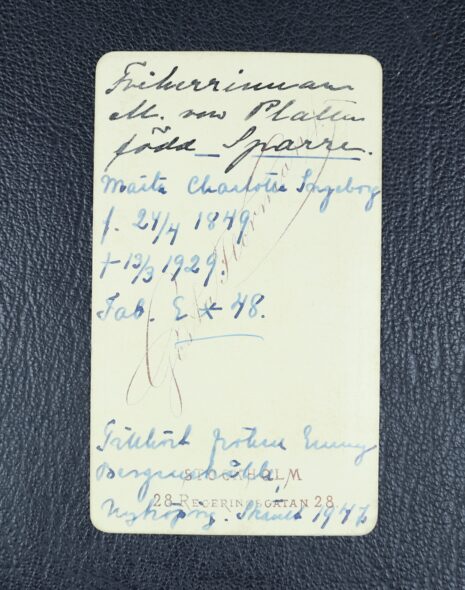 Friherrinnan
M. von Platen
född Sparre.
Märta Charlotta Ingeborg
f. 24/4 1849
† 13/3 1929.
Tab. E * 48.
Gösta Florman
Tillhört fröken Emmy
STOCKHOLM
28 REGERINGSGATAN 28
Nyköping. 1947